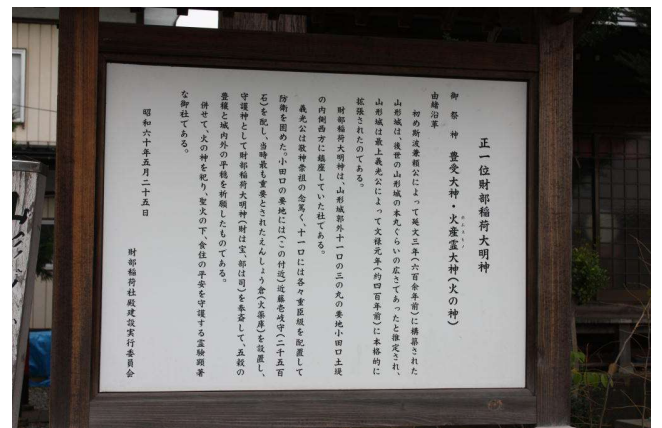 正一位財部稲荷大明神
御祭神 豊受大神・火産霊大神(火の神)
由緒沿革
初め斯波兼頼公によって延文三年(六百余年前)に構築された
山形城は、後世の山形城の本丸ぐらいの広さであったと推定され、
山形城は最上義光公によって文禄元年(約四百年前)に本格的に
拡張されたのである。
財部稲荷大明神は、山形城郭外十一口の三の丸の要地小田口土堤
の内側西方に鎮座していた社である。
義光公は敬神崇祖の念篤く、十一口には各々重臣級を配置して
防衛を固めた。小田口の要地には(この付近)近藤壱岐守(二千五百
石)を配し、当時最も重要とされたえんしょう倉(火薬庫)を設置し、
守護神として財部稲荷大明神(財は宝、部は司)を奉斎して、五穀の
豊穣と城内外の平穏を祈願したものである。
併せて、火の神を祀り、聖火の下、食住の平安を守護する霊験顕著
な御社である。
昭和六十年五月二十五日
財部稲荷社殿建設実行委員会